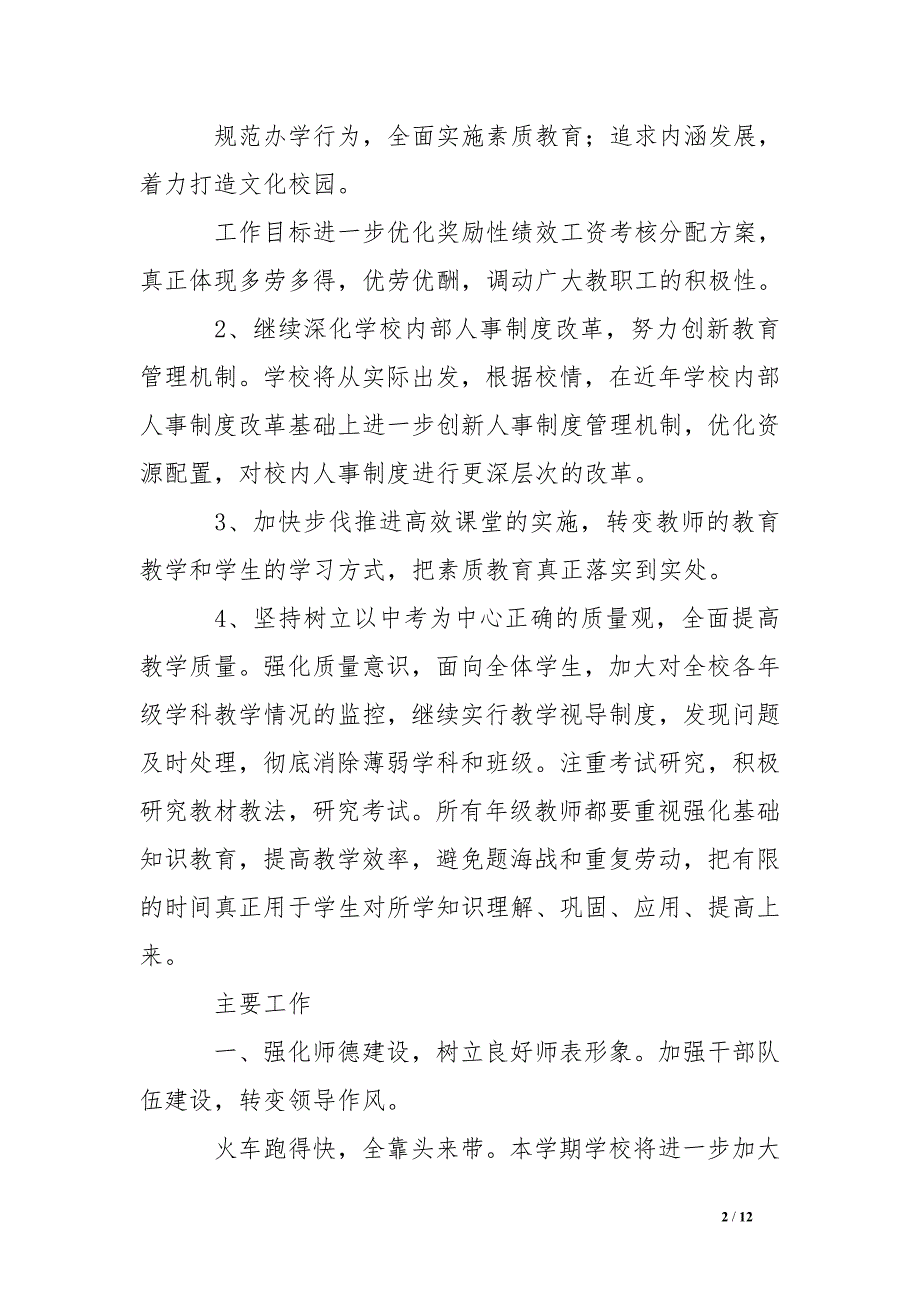 规范办学行为，全面实施素质教育；追求内涵发展，
着力打造文化校园。
工作目标进一步优化奖励性绩效工资考核分配方案，
真正体现多劳多得，优劳优酬，调动广大教职工的积极性。
2、继续深化学校内部人事制度改革，努力创新教育
管理机制。学校将从实际出发，根据校情，在近年学校内部
人事制度改革基础上进一步创新人事制度管理机制，优化资
源配置，对校内人事制度进行更深层次的改革。
3、加快步伐推进高效课堂的实施，转变教师的教育
教学和学生的学习方式，把素质教育真正落实到实处。
4、坚持树立以中考为中心正确的质量观，全面提高
教学质量。强化质量意识，面向全体学生，加大对全校各年
级学科教学情况的监控，继续实行教学视导制度，发现问题
及时处理，彻底消除薄弱学科和班级。注重考试研究，积极
研究教材教法，研究考试。所有年级教师都要重视强化基础
知识教育，提高教学效率，避免题海战和重复劳动，把有限
的时间真正用于学生对所学知识理解、巩固、应用、提高上
来。
主要工作
一、强化师德建设，树立良好师表形象。加强干部队
伍建设，转变领导作风。
火车跑得快，全靠头来带。本学期学校将进一步加大
2 / 12